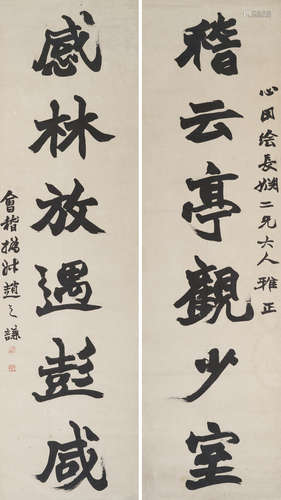 心田長二兄大人雅正
稽云亭觀少室
感林放遇彭咸
會稽撝叔趙之謙